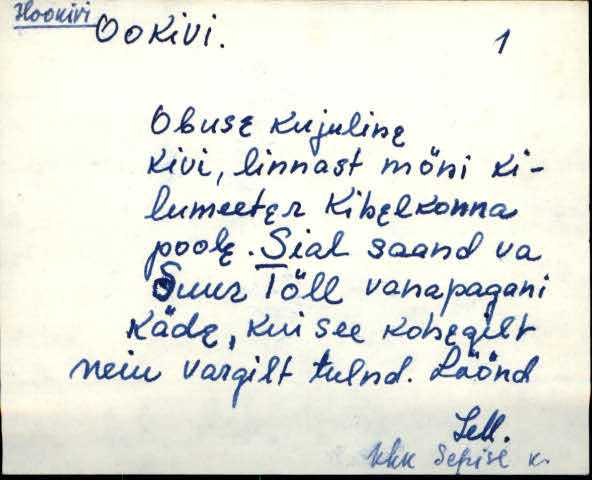 Hookivi
Ookivi. 1
Obusę kujulinę
kivi, linnast mõni ki-
lumeetęr Kihęlkonna
poolę. Sial saand va
Suur Tõll vanapagani
kädę, kui see kohęgilt
neiu vargilt tulnd. Löönd
Kkk Sepise k.